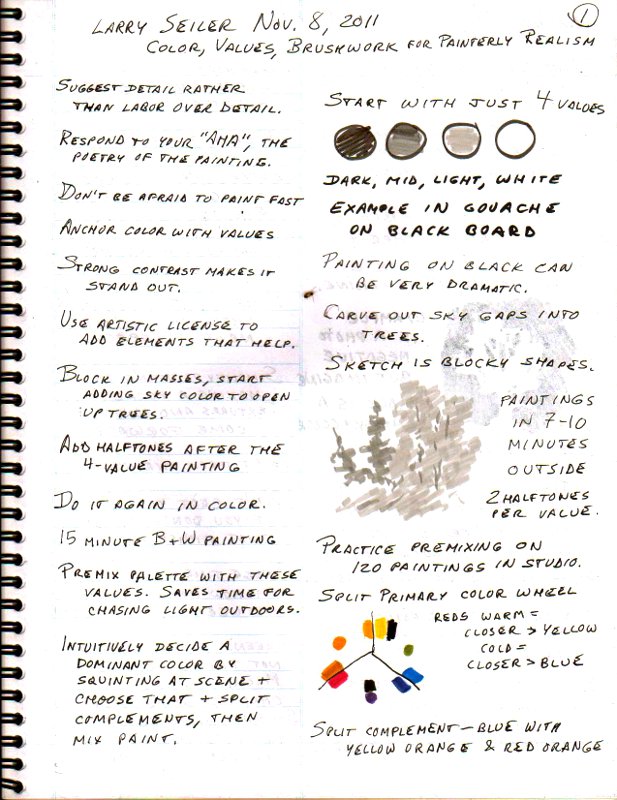 Larry Seiler Nov. 8, 2011
1
Color, Values, Bruskwork for Painterly Realism
Suggest detail rather
than labor over detail.
Respond to your "AHA", the
poetry of the painting.
Don't be afraid to paint fast
Anchor color with values
Strong contrast makes it
stand out.
Use artistic license to
add elements that help.
Block in masses, start
adding sky color to open
up trees.
Add halftones after the
4-value painting
Do it again in color.
15 minute B+W painting
Premix palette with these
values. Saves time for
chasing light outdoors.
Intuitively decide a
dominant color by
squinting at scene +
choose that + split
complements, then
mix paint.
Start with just 4 values
Dark, mid, light, white
Example in gouache
on black board
Painting on black can
be very dramatic.
Carve out sky gaps into
trees.
Sketch is blocky shapes.
Paintings
in 7-10
minutes
outside
2 halftones
per value.
Practice premixing on
120 paintings in studio.
Split Primary color wheel
Reds warm =
closer > yellow
cold =
closer > blue
Split complement — blue with
yellow orange & red orange